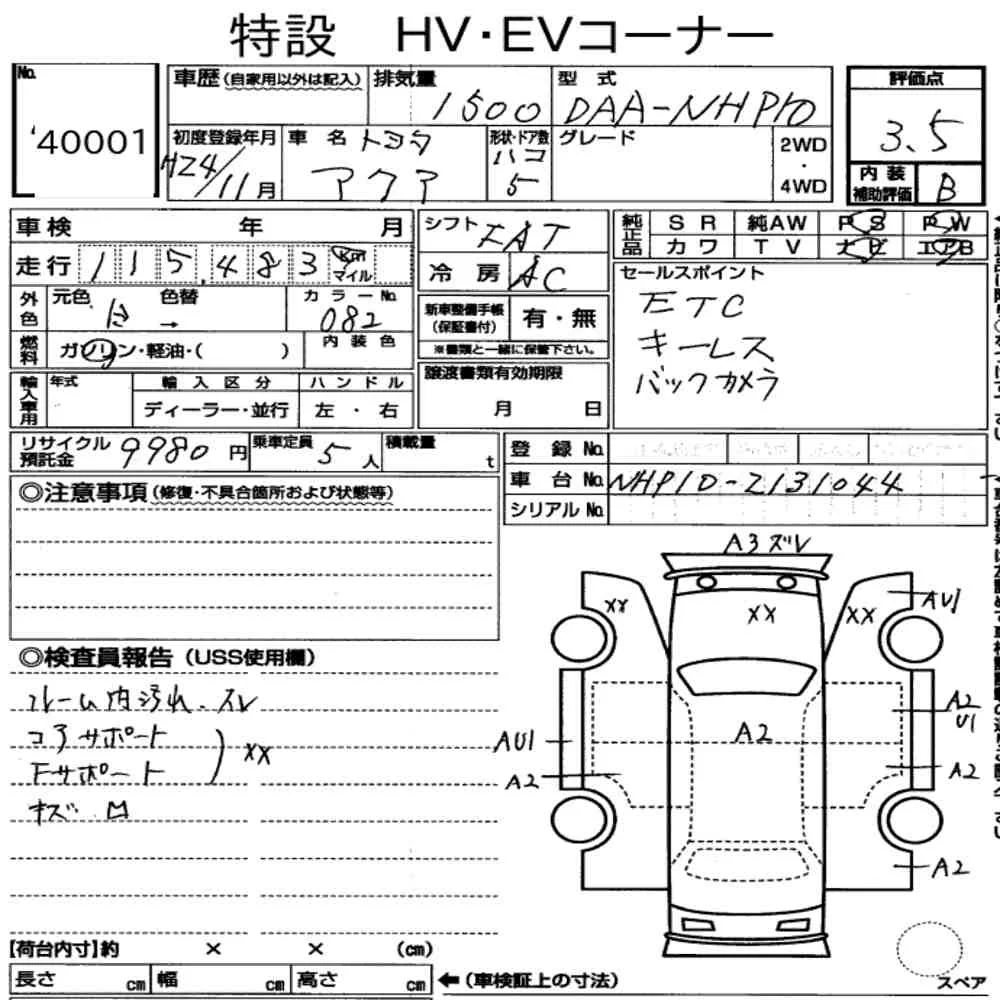 特設 HV・EVコーナー
No. '40001
車歴(自家用以外は記入) 排気量 1500 型式 DAA-NHP10
評価点 3.5
初度登録年月 H24/11月 車名 トヨタ アクア 形状・ドア数 ハコ 5 グレード 2WD・4WD
内装補助評価 B
車検 年 月
走行 115,483 Km マイル
シフト FAT
冷房 AC
純正品 SR 純AW PS PW
カワ TV ナビ エアB
外色 元色 白 色替 → カラーNo. 082
燃料 ガソリン・軽油・( ) 内装色
新車整備手帳(保証書付) 有・無
※書類と一緒に保管下さい。
セールスポイント
ETC
キーレス
バックカメラ
輸入車用 年式 輸入区分 ハンドル
ディーラー・並行 左・右
譲渡書類有効期限
月 日
リサイクル預託金 9980円 乗車定員 5人 積載量 t
登録No.
車台No. NHP10-2131044
シリアルNo.
◎注意事項(修復・不具合箇所および状態等)
◎検査員報告(USS使用欄)
フレーム内汚れ.スレ
コアサポート
Fサポート
XX
キズ.凹
A3ズレ
XX
XX
XX
AU1
A2
U1
AU1
A2
A2
A2
A2
【荷台内寸】約 × × (cm)
長さ cm 幅 cm 高さ cm
←(車検証上の寸法)
スペア